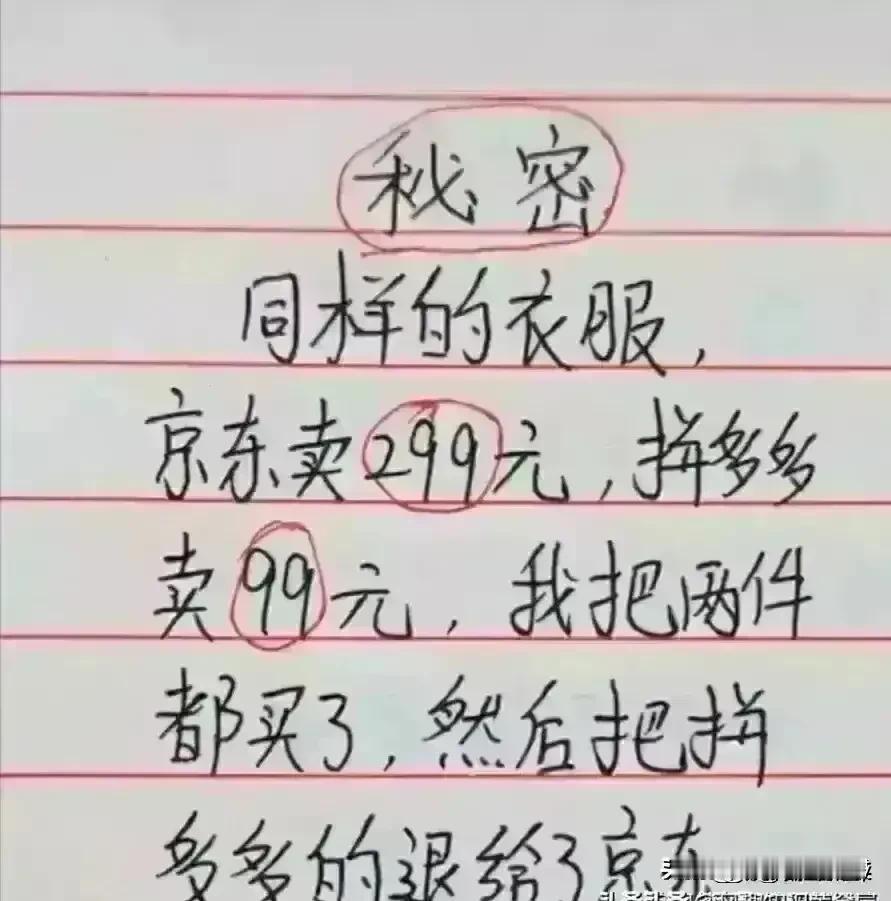 秘密
同样的衣服,
京东卖299元,拼多多
卖99元,我把两件
都买了,然后把拼
多多的退给了京东